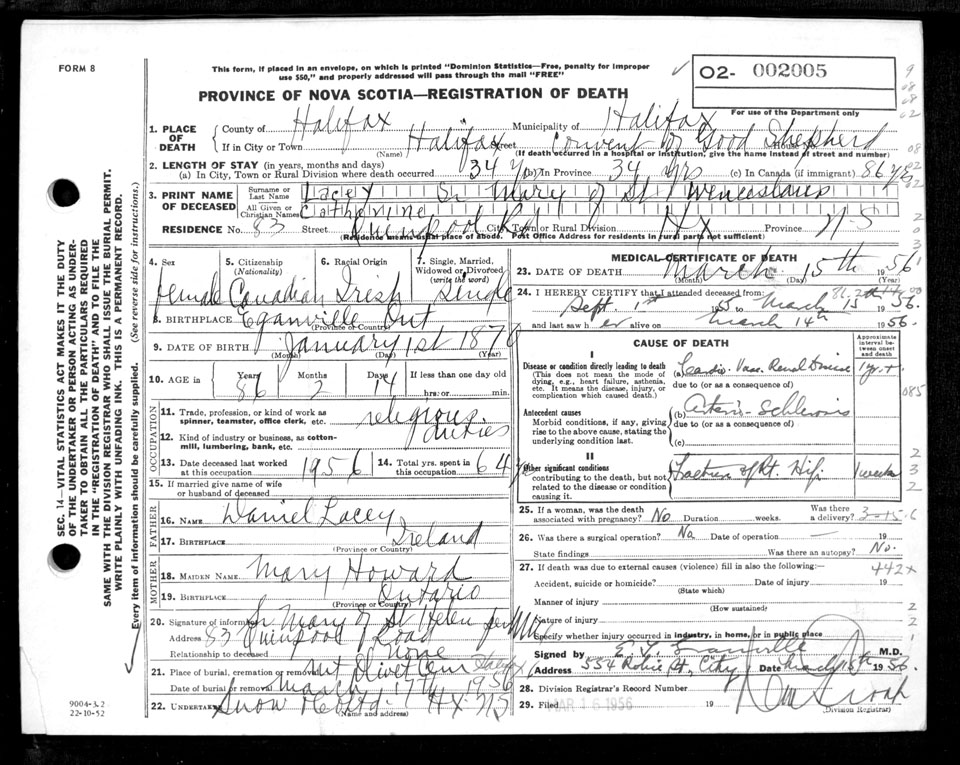 FORM 8
This form, if placed in an envelope, on which is printed "Dominion Statistics—Free, penalty for improper
use $50," and properly addressed will pass through the mail "FREE"
02- 002005
PROVINCE OF NOVA SCOTIA—REGISTRATION OF DEATH
For use of the Department only
1. PLACE OF DEATH County of Halifax Municipality of Halifax
If in City or Town Halifax Street Convent of Good Shepherd House No.
(Name) (If death occurred in a hospital or institution, give the name instead of street and number)
2. LENGTH OF STAY (in years, months and days)
(a) In City, Town or Rural Division where death occurred 34 Yrs (b) In Province 34 yrs (c) In Canada (if immigrant) 86 yrs
3. PRINT NAME OF DECEASED Surname or Last Name Lacey Sr. Mary of St Wenceslaus
All Given or Christian Names Catherine
RESIDENCE No. 83 Street Quinpool Rd City, Town or Rural Division Hx Province N-S
(Residence means usual place of abode. Post Office Address for residents in rural parts not sufficient)
4. Sex female
5. Citizenship (Nationality) Canadian
6. Racial Origin Irish
7. Single, Married, Widowed or Divorced (write the word) Single
8. BIRTHPLACE Eganville Ont
(Province or Country)
9. DATE OF BIRTH January 1st 1870
(Month) (Day) (Year)
10. AGE in Years 86 Months 2 Days 14 If less than one day old hrs. or min.
OCCUPATION
11. Trade, profession, or kind of work as spinner, teamster, office clerk, etc. religious
12. Kind of industry or business, as cotton-mill, lumbering, bank, etc. duties
13. Date deceased last worked at this occupation 1956 14. Total yrs. spent in this occupation 64 yrs
15. If married give name of wife or husband of deceased
FATHER
16. NAME Daniel Lacey
17. BIRTHPLACE Ireland
(Province or Country)
MOTHER
18. MAIDEN NAME Mary Howard
19. BIRTHPLACE Ontario
(Province or Country)
20. Signature of informant Sr Mary of St Helen
Address 83 Quinpool Road
Relationship to deceased none
21. Place of burial, cremation or removal Mt Olivet Cem Halifax
Date of burial or removal March 17th 1956
22. UNDERTAKER Snow & Co Ltd. Hx. NS
(Name and address)
MEDICAL CERTIFICATE OF DEATH
23. DATE OF DEATH March 15th 1956
(Month) (Day)
24. I HEREBY CERTIFY that I attended deceased from:
Sept. 1st 1955 to March 15th 1956.
and last saw h er alive on March 14th 1956.
CAUSE OF DEATH
Approximate interval between onset and death
I
Disease or condition directly leading to death
(This does not mean the mode of dying, e.g., heart failure, asthenia, etc. It means the disease, injury, or complication which caused death.)
(a) Cardio-Vasc. Renal Disease 1 yr. +
due to (or as a consequence of)
Antecedent causes
Morbid conditions, if any, giving rise to the above cause, stating the underlying condition last.
(b) Arterio-Sclerosis
due to (or as a consequence of)
(c)
II
Other significant conditions
contributing to the death, but not related to the disease or condition causing it.
Fracture of Rt. Hip 1 week
25. If a woman, was the death associated with pregnancy? No Duration weeks. Was there a delivery?
26. Was there a surgical operation? No Date of operation — 19
State findings Was there an autopsy? No.
27. If death was due to external causes (violence) fill in also the following: 442x
Accident, suicide or homicide? Date of injury 19
(State which)
Manner of injury
(How sustained)
Nature of injury
Specify whether injury occurred in industry, in home, or in public place
Signed by E. V. Granville M.D.
Address 554 Robie St, City Date March 15th 1956.
28. Division Registrar's Record Number
29. Filed MAR 16 1956 19
(Division Registrar)
9004-3.2
22-10-52
SEC. 14—VITAL STATISTICS ACT MAKES IT THE DUTY
OF THE UNDERTAKER OR PERSON ACTING AS UNDER-
TAKER TO OBTAIN ALL THE PARTICULARS REQUIRED
IN THE "REGISTRATION OF DEATH" AND TO FILE THE
SAME WITH THE DIVISION REGISTRAR WHO SHALL ISSUE THE BURIAL PERMIT.
WRITE PLAINLY WITH UNFADING INK. THIS IS A PERMANENT RECORD.
Every item of information should be carefully supplied. (See reverse side for instructions).